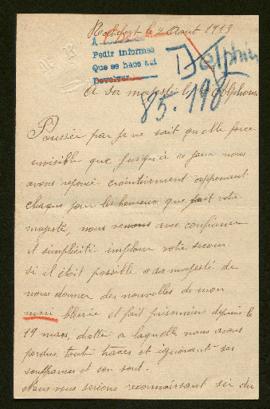 Rochefort le 4 Aout 1919
A
Pedir informes
Que se hace asi
Devolver
Delphin
85.198
A Sa majesté le Alphonse
Poussée par je ne sait quelle force
invisible que jusqu'à ce jour nous
avons repoué craintivement apprenant
chaque jour les heureux que fait votre
majesté, nous venons avec confiance
et simplicité implorer votre secours
si il était possible a sa majesté de
nous donner des nouvelles de mon
mari blessé et fait prisonnier depuis le
19 mars, date a laquelle nous avons
perdue toute traces et ignorant ses
souffrances et son sort.
Nous vous serions reconnaissant si du